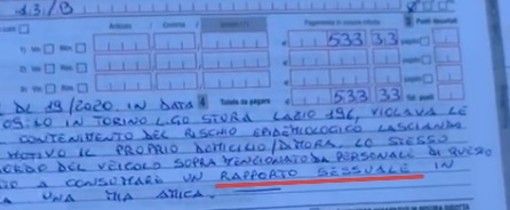 1.3/B
Articolo / Comma /
Pagamento in misura ridotta
3 Punti decurtati
1) Vis No
533 33
2) Vis No
3) Vis No
533 33
4 Totale da pagare
DL 19/2020. IN DATA
09:40 IN TORINO L.GO STURA LAZIO 196, VIOLAVA LE
CONTENIMENTO DEL RISCHIO EPIDEMIOLOGICO LASCIANDO
MOTIVO IL PROPRIO DOMICILIO/DIMORA. LO STESSO
BORDO DEL VEICOLO SOPRA MENZIONATO DA PERSONALE DI
A CONSUMARE UN RAPPORTO SESSUALE IN
A UNA MIA AMICA.